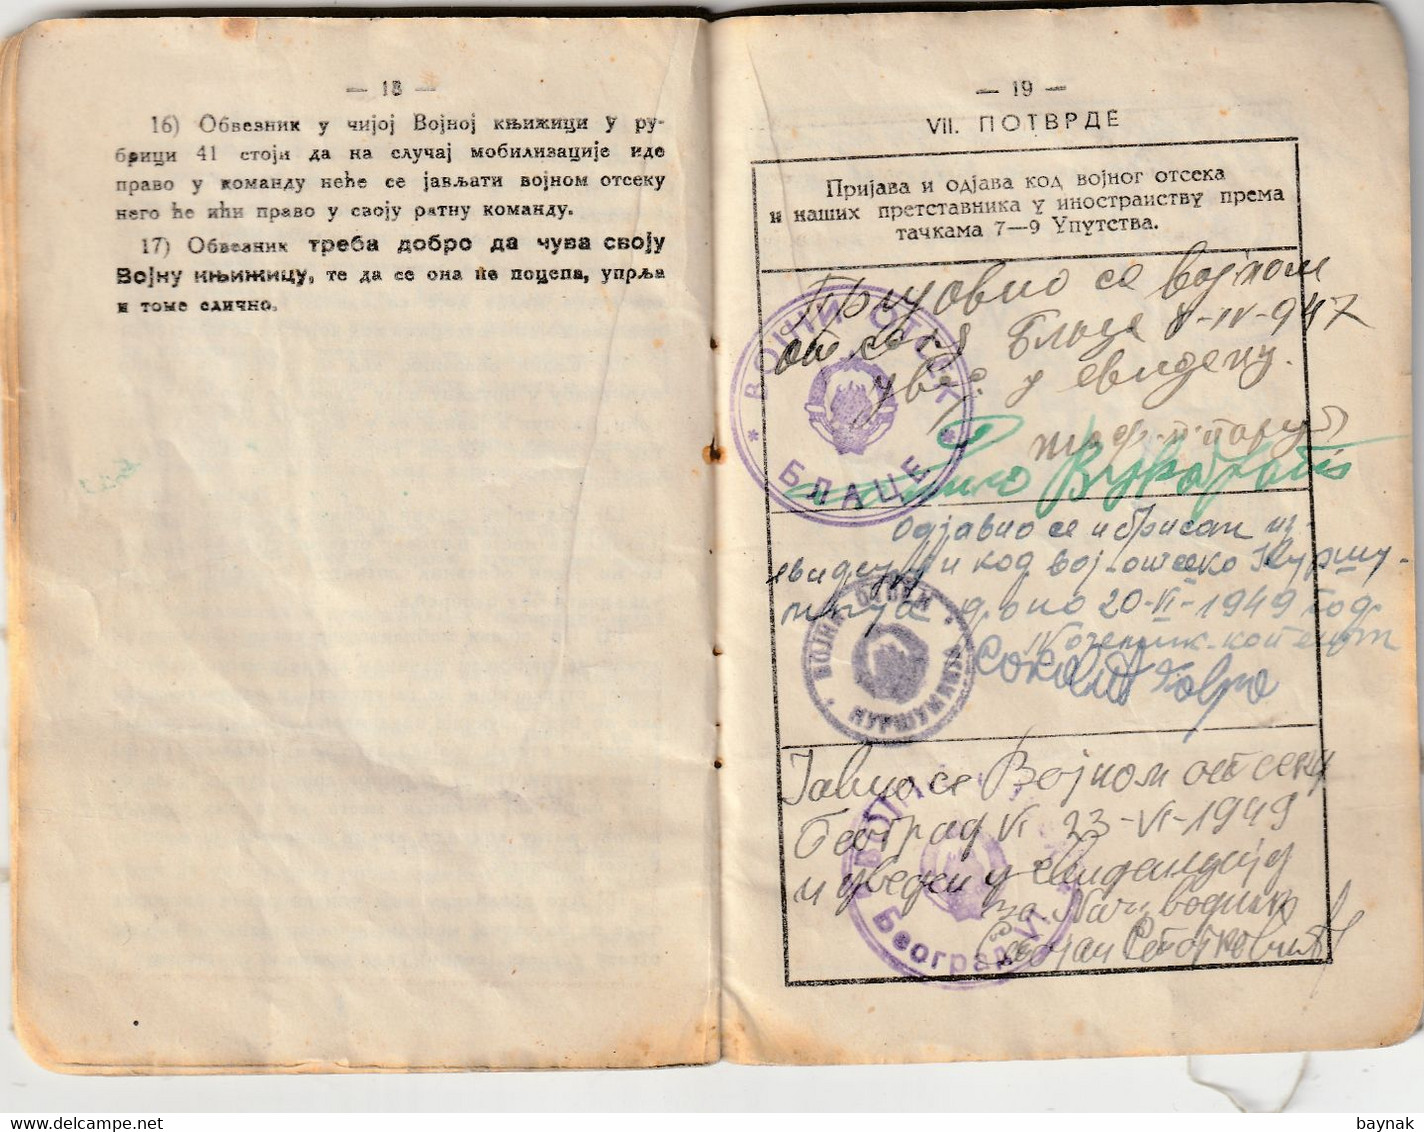 — 18 —
16) Обвезник у чијој Војној књижици у ру-
брици 41 стоји да на случај мобилизације иде
право у команду неће се јављати војном отсеку
него ће ићи право у своју ратну команду.
17) Обвезник треба добро да чува своју
Војну књижицу, те да се она не поцепа, упрља
и томе слично.
— 19 —
VII. ПОТВРДЕ
Пријава и одјава код војног отсека
и наших претставника у иностранству према
тачкама 7—9 Упутства.
Пријавио се војном
отсеку Блаце 8-IV-947
увед. у евиденц.
ВОЈНИ ОТСЕК
* БЛАЦЕ *
Одјавио се и брисан из
евиденције код вој. отсека Куршу-
млија дана 20-VI-1949 год.
ВОЈНИ ОТСЕК
КУРШУМЛИЈА
Јавио се Војном отсеку
Београд VI 23-VI-1949
и уведен у евиденцију
за Нач. водник
Стојан Стојковић
Београд VI
baynak